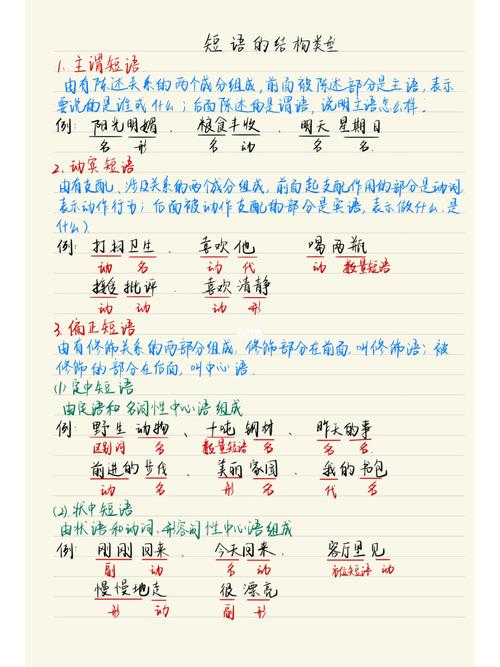 短语的结构类型
1. 主谓短语
由有陈述关系的两个成分组成,前面被陈述部分是主语,表示
要说的是谁或什么;后面陈述的是谓语,说明主语怎么样。
例: 阳光明媚、 粮食丰收、 明天 星期日
名 形 名 动 名 名
2. 动宾短语
由有支配、涉及关系的两个成分组成,前面起支配作用的部分是动词
表示动作行为;后面被动作支配的部分是宾语,表示做什么、是
什么)
例: 打扫卫生、 喜欢他 喝两瓶
动 名 动 代 动 数量短语
接受批评、 喜欢清静
动 动 动 形
3. 偏正短语
由有修饰关系的两部分组成,修饰部分在前面,叫修饰语;被
修饰的部分在后面,叫中心语.
(1) 定中短语
由定语和名词性中心语组成
例: 野生动物、 十吨钢材、 昨天的事
区别词 名 数量短语 名 名 名
前进的步伐、 美丽家园、 我的书包
动 名 形 名 代 名
(2) 状中短语
由状语和动词、形容词性中心语组成
例: 刚刚回来、 今天回来、 客厅里见
副 动 名 动 方位短语 动
慢慢地走、 很漂亮
形 动 副 形